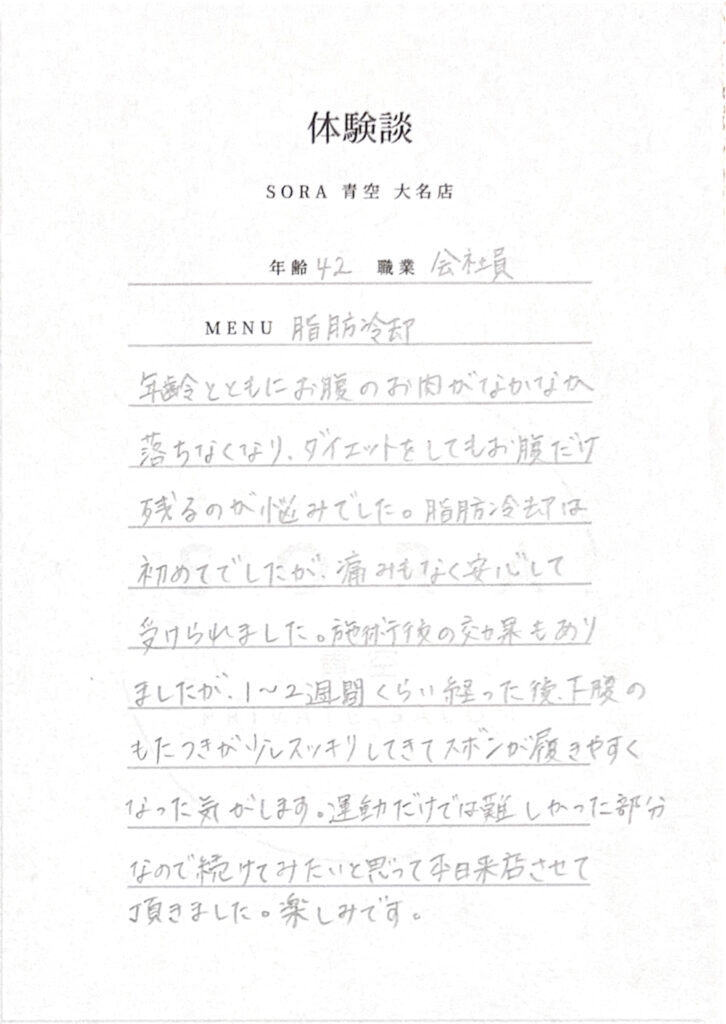 体験談
SORA 青空 大名店
年齢 42 職業 会社員
MENU 脂肪冷却
年齢とともにお腹のお肉がなかなか
落ちなくなり、ダイエットをしてもお腹だけ
残るのが悩みでした。脂肪冷却は
初めてでしたが、痛みもなく安心して
受けられました。施術後の効果もあり
ましたが、1〜2週間くらい経った後、下腹の
もたつきが少しスッキリしてきてズボンが履きやすく
なった気がします。運動だけでは難しかった部分
なので続けてみたいと思って本日来店させて
頂きました。楽しみです。